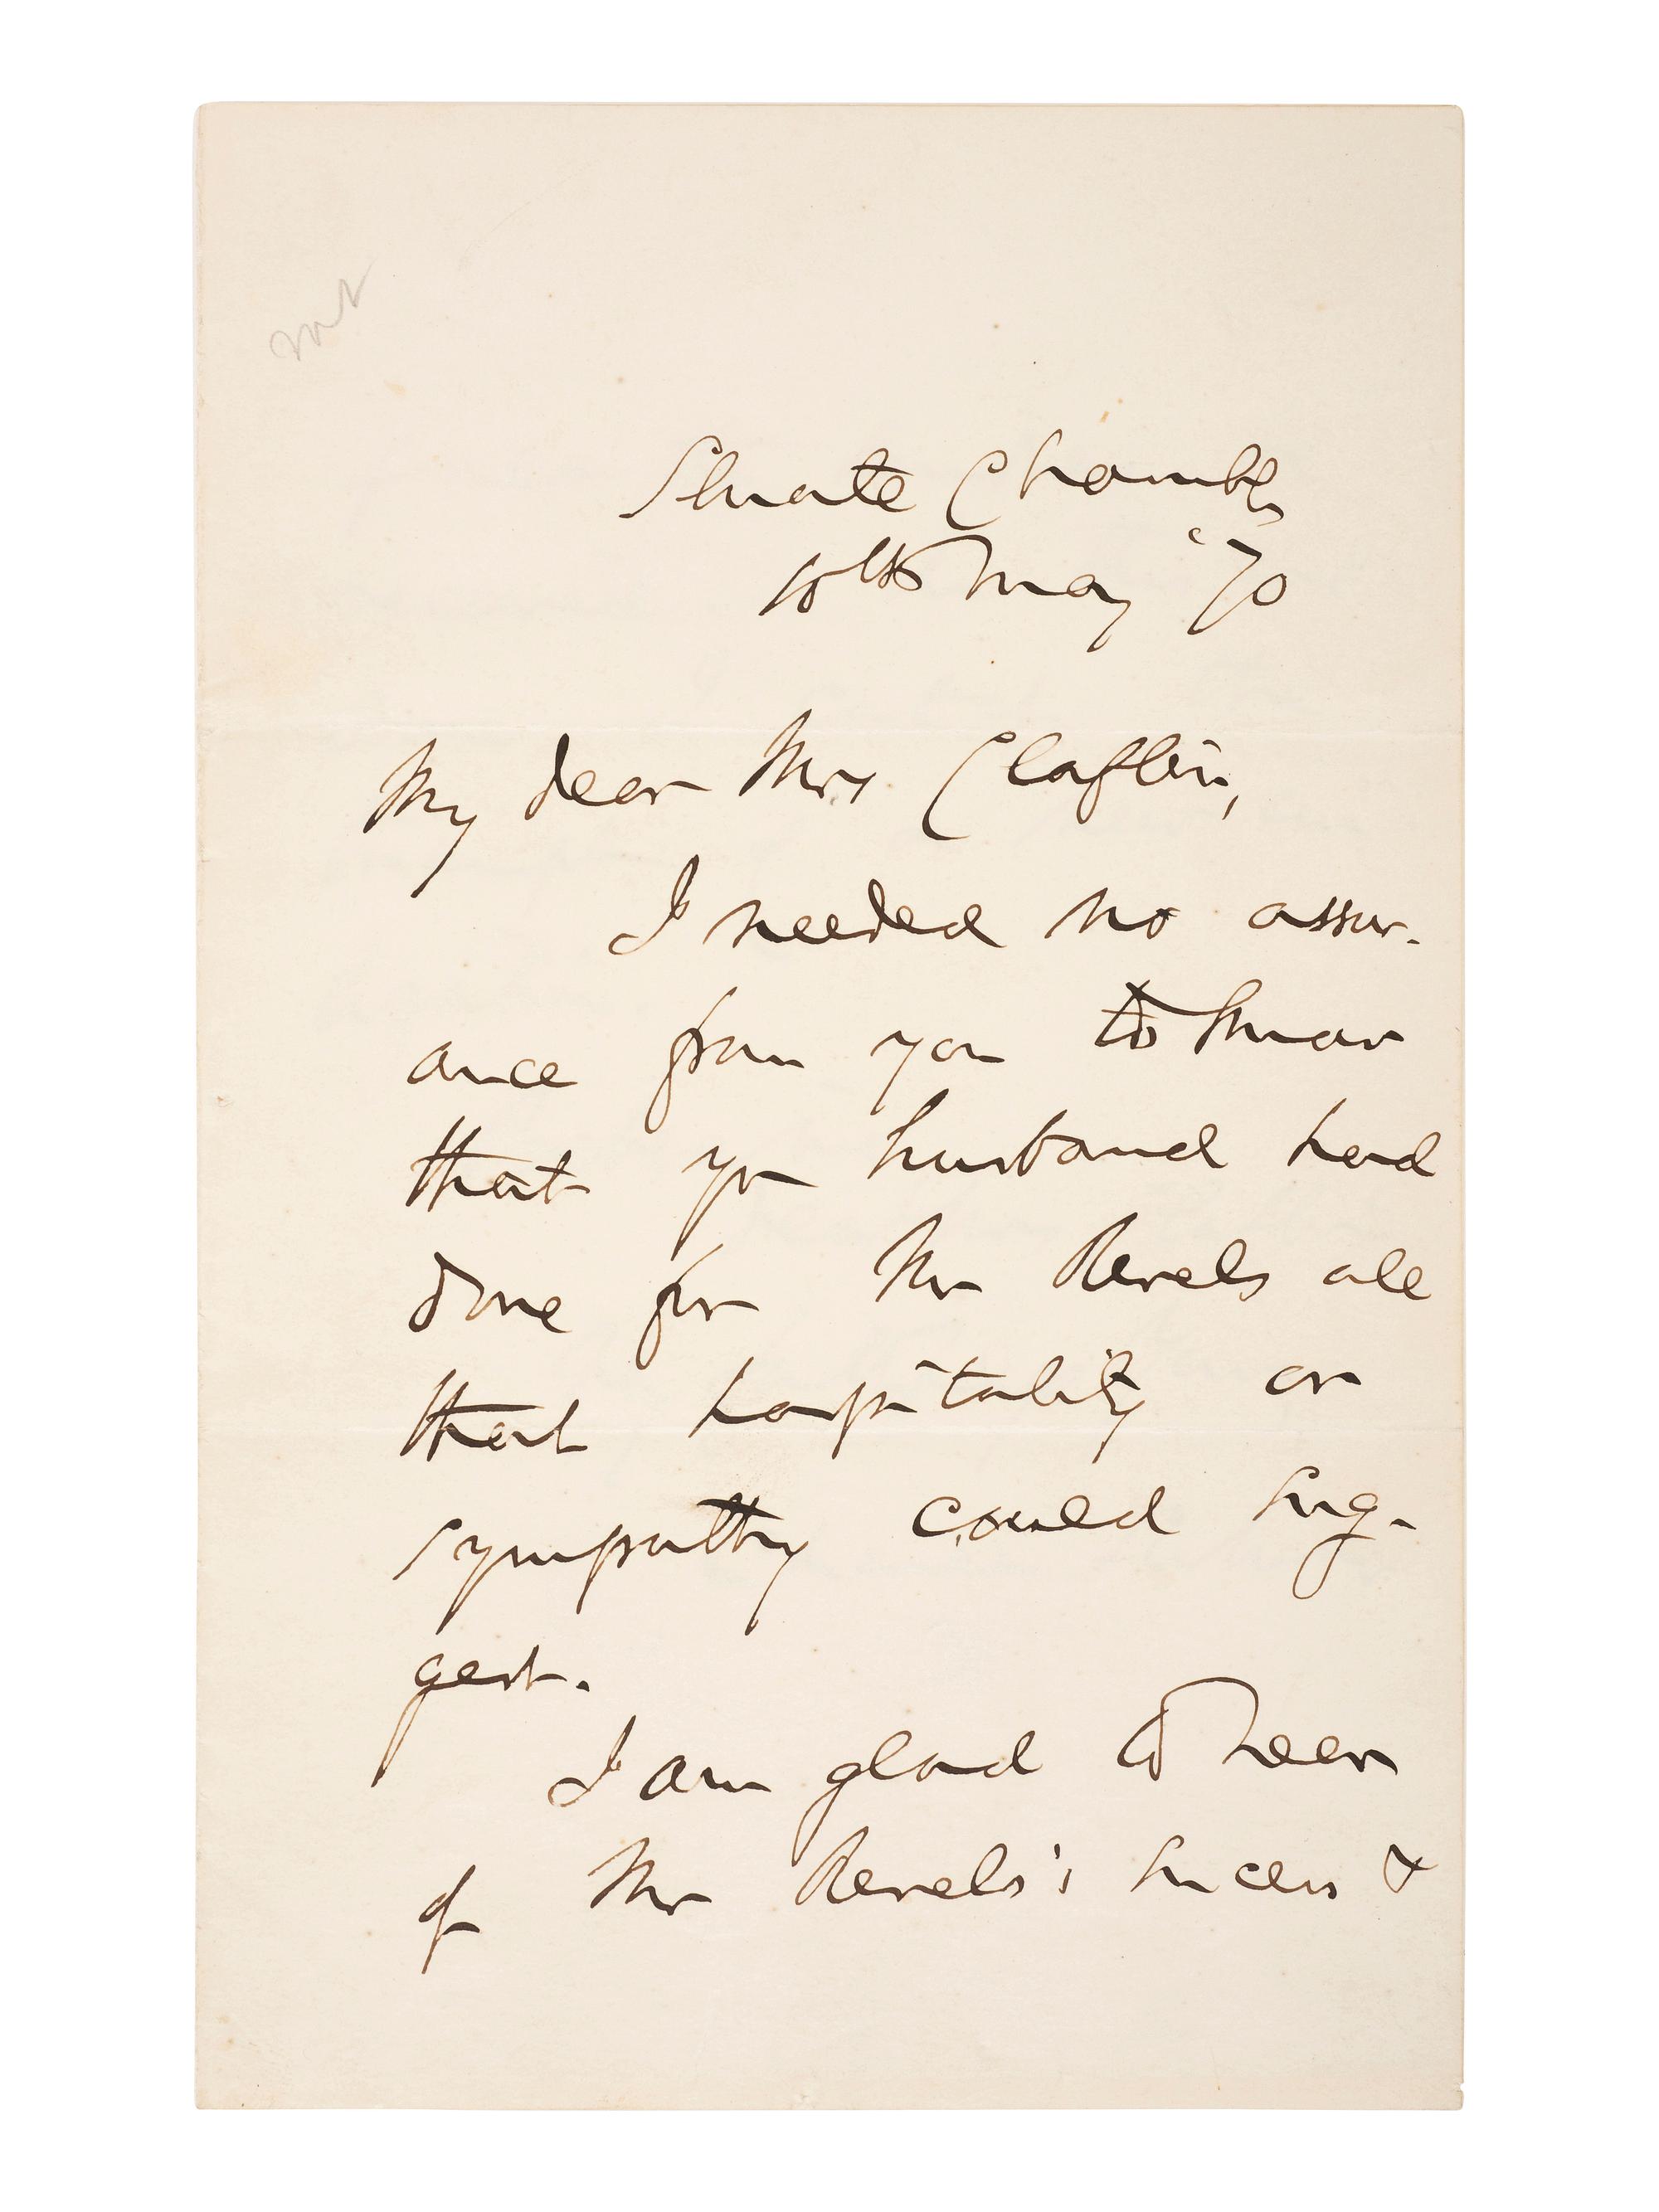 Senate Chamber
10th May '70
My dear Mrs Claflin,
I needed no assur-
ance from you to know
that yr husband had
done for Mr Revels all
that hospitality or
sympathy could sug-
gest.
I am glad to hear
of Mr Revels's success &